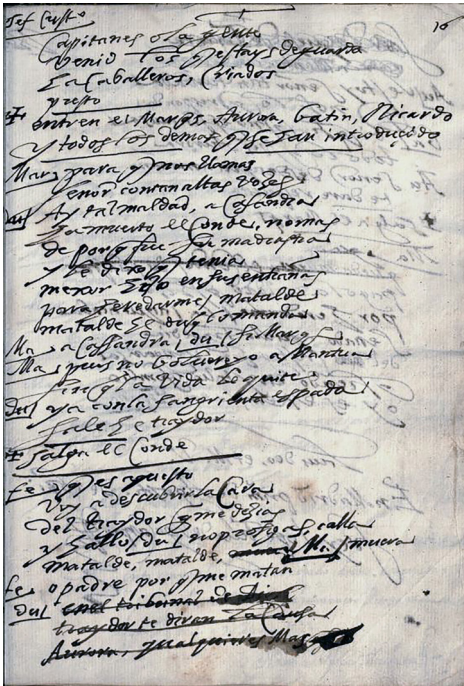 16
capitanes o la gente
Venid los q̃ estays de guarda
Ha Caballeros, Criados
presto
entren el Marqs, Aurora, Batin, Ricardo
y todos los demas q̃ se han introducido
Mar, para q̃ nos llamas
señor con tan altas vozes
Du, Ay tal maldad, a Casandra
ha muerto el Conde, no mas
de porq̃ fue su madrastra
y le dixo q̃ tenia
menor hijo en sus entrañas
para heredarme, matalde
matalde el duq lo manda
Ma, a Cassandra, Du, si Marqs
Ma, pues no bolvere yo a Mantua
sin q̃ la vida le quite
Du, ya con la sangrienta espada
sale el traydor
salga el Conde
fe, q̃ es aquesto
voy a descubrir la Cara
del traydor q̃ me dezias
y hallo, Du, no prosigas, calla
matalde, matalde, Ma, muera
fe, o padre por q̃ me matan
Du, en el tribunal de Dios
traydor te diran la Causa
Aurora,